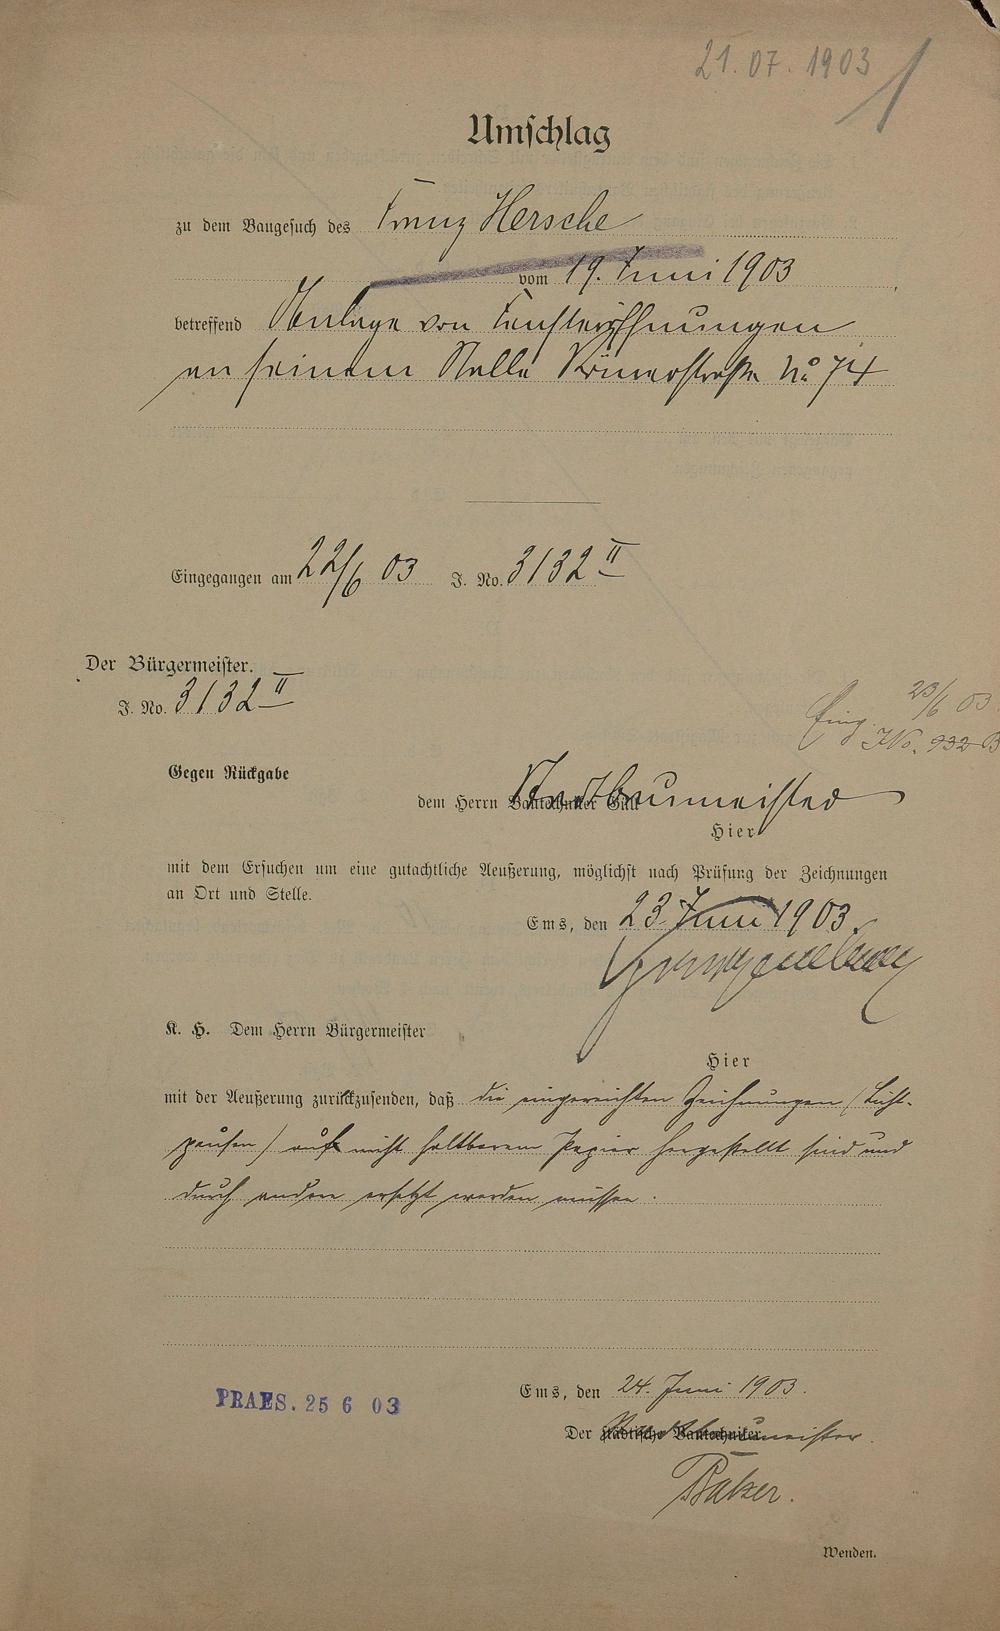 21. 07. 1903
1
Umschlag
zu dem Baugesuch des Franz Hersche
vom 19. Juni 1903
betreffend Anlage von Fensteröffnungen
an seinem Stalle Römerstraße No 74
Eingegangen am 22/6 03 J. No. 3132 II
Der Bürgermeister.
J. No. 3132 II
Eing. 23/6 03
JNo. 932 B
Gegen Rückgabe
dem Herrn Bautechniker Stadtbaumeister
Hier
mit dem Ersuchen um eine gutachtliche Aeußerung, möglichst nach Prüfung der Zeichnungen
an Ort und Stelle.
Ems, den 23. Juni 1903.
K. H. Dem Herrn Bürgermeister
Hier
mit der Aeußerung zurückzusenden, daß die eingereichten Zeichnungen (Licht-
pausen) auf nicht haltbarem Papier hergestellt sind und
durch andere ersetzt werden müssen.
PRAES. 25 6 03
Ems, den 24. Juni 1903.
Der städtische Bautechniker Stadtbaumeister.
Balzer.
Wenden.